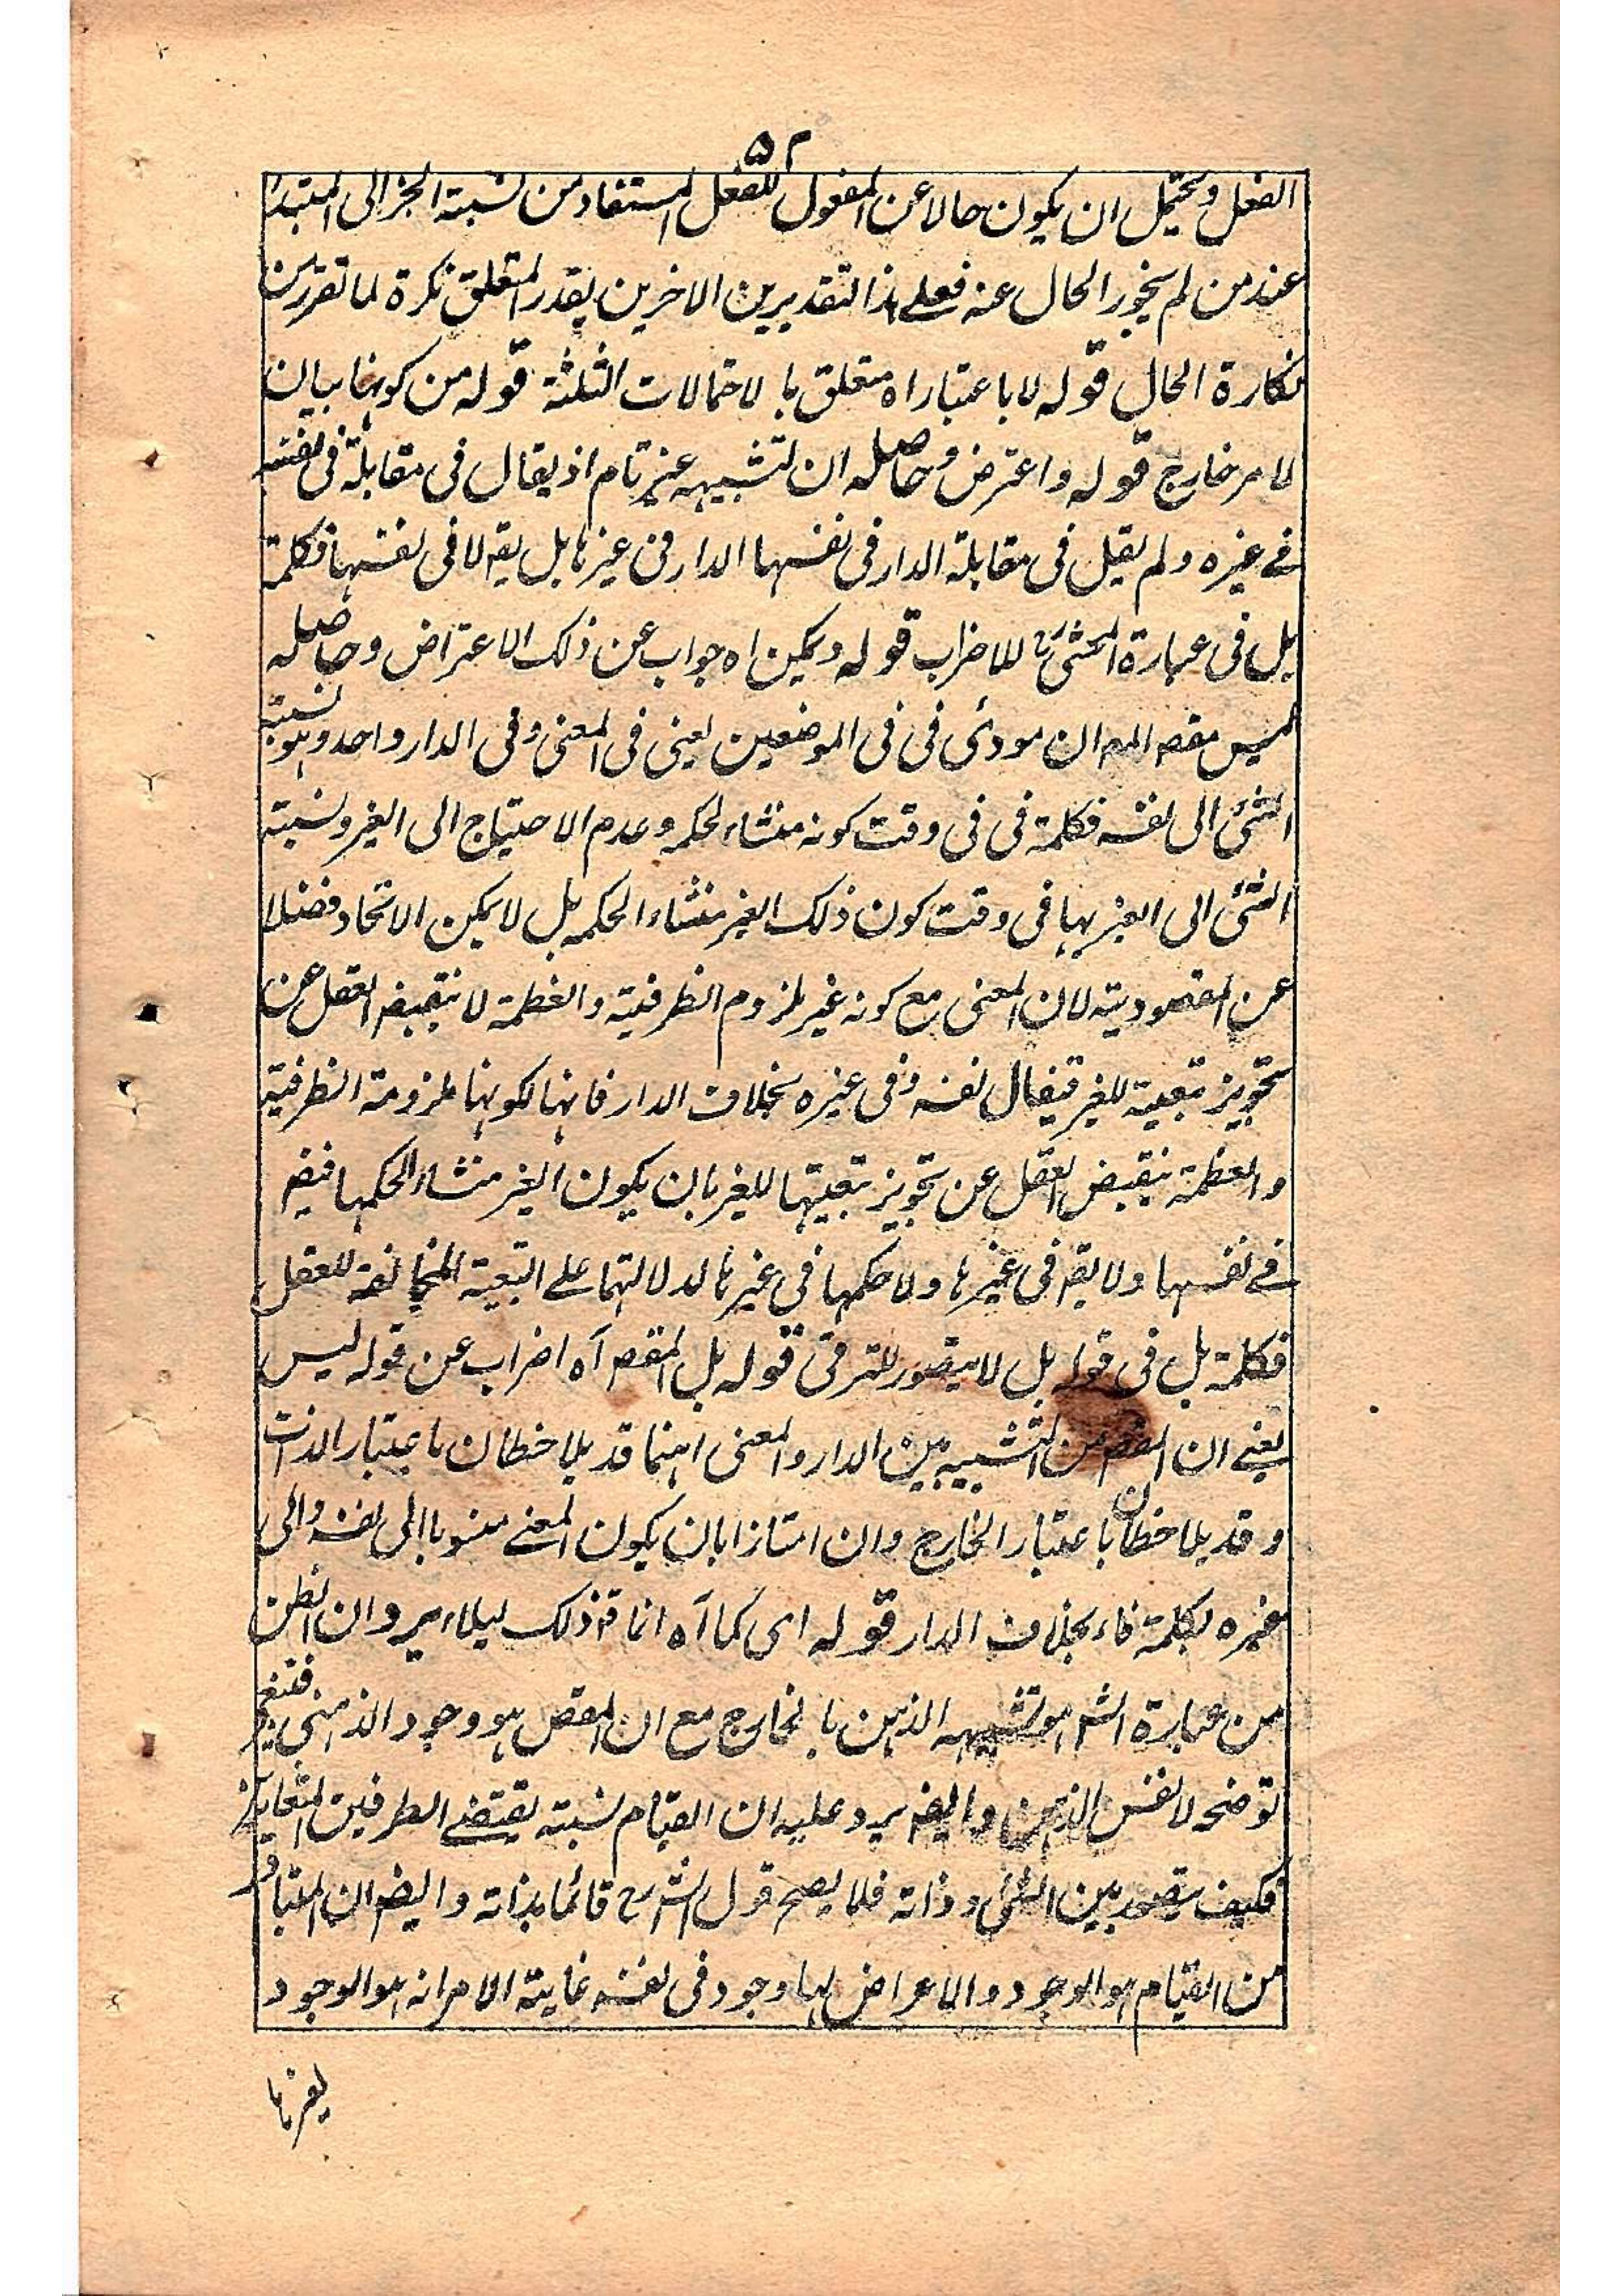 ٥٢
الفعل ويحتمل ان يكون حالا عن المفعول للفعل المستفاد من نسبة الخبر الى المبتدأ
عند من لم يجوز الحال عنه فعلے هذا التقديرين الاخرين يقدر المتعلق نكرة لما تقرر من
نكارة الحال قوله لا باعتباراه متعلق بالاحتمالات الثلثة قوله من كونها بيان
لامر خارج قوله واعترض وحاصله ان تشبيهه غير تام اذ يقال فى مقابلة فى نفسه
فے غيره ولم يقل فى مقابلة الدار فى نفسها الدار فى غيرها بل يقہ لا فى نفسها فكلمة
بل فى عبارة المحشى للاضراب قوله ويمكن اه جواب عن ذلك الاعتراض وحاصله
ليس مقصہ المصہ ان مودئ فى فى الموضعين يعنى فى المعنى وفى الدار واحد وهو نسبة
الشئ الى نفسه فكلمة فى فى وقت كونه منشاء لحكمه وعدم الاحتياج الى الغير ونسبة
الشئ الى الغير بها فى وقت كون ذلك الغير منشاء الحكمه بل لا يمكن الاتحاد فضلا
عن المقصودية لان المعنى مع كونه غير ملزوم الظرفية والعظمة لا ينقبض العقل عن
تجويز تبعية للغير فيقال نفسه وفى غيره بخلاف الدار فانها لكونها ملزومة الظرفية
والعظمة ينقبض العقل عن تجويز تبعيتها للغير بان يكون الغير منشاء الحكمها فيقہ
فے نفسها ولا يقہ فى غيرها ولا حكمها فى غيرها لدلالتهما على التبعية المخالفة للعقل
فكلمة بل فى قوله بل لا يتصور للترقى قوله بل المقصہ آه اضراب عن قوله ليس
يعنے ان المقصہ من التشبيه بين الدار والمعنى انهما قد يلاحظان باعتبار الذات
وقد يلاحظان باعتبار الخارج وان امتازا بان يكون المعنے منسوبا الى نفسه والى
غيره بكلمة فاء بخلاف الدار قوله اى كما آه انما قہ ذلك ليلاء يرد ان الظن
من عبارة الشہ هو تشبيهه الذهن بالخارج مع ان المقصہ هو وجود الذهنى
توضحه لا نفس الذهن وايضہ يرد عليه ان القيام نسبة يقتضے الطرفين المتغايرين
فكيف يتصور بين الشئ وذاته فلا يصح قول الشارح قائما بذاته وايضہ ان المتبادر
من القيام هو الوجود والاعراض لها وجود فى نفسه غاية الامر انه هو الوجود
لغيرها